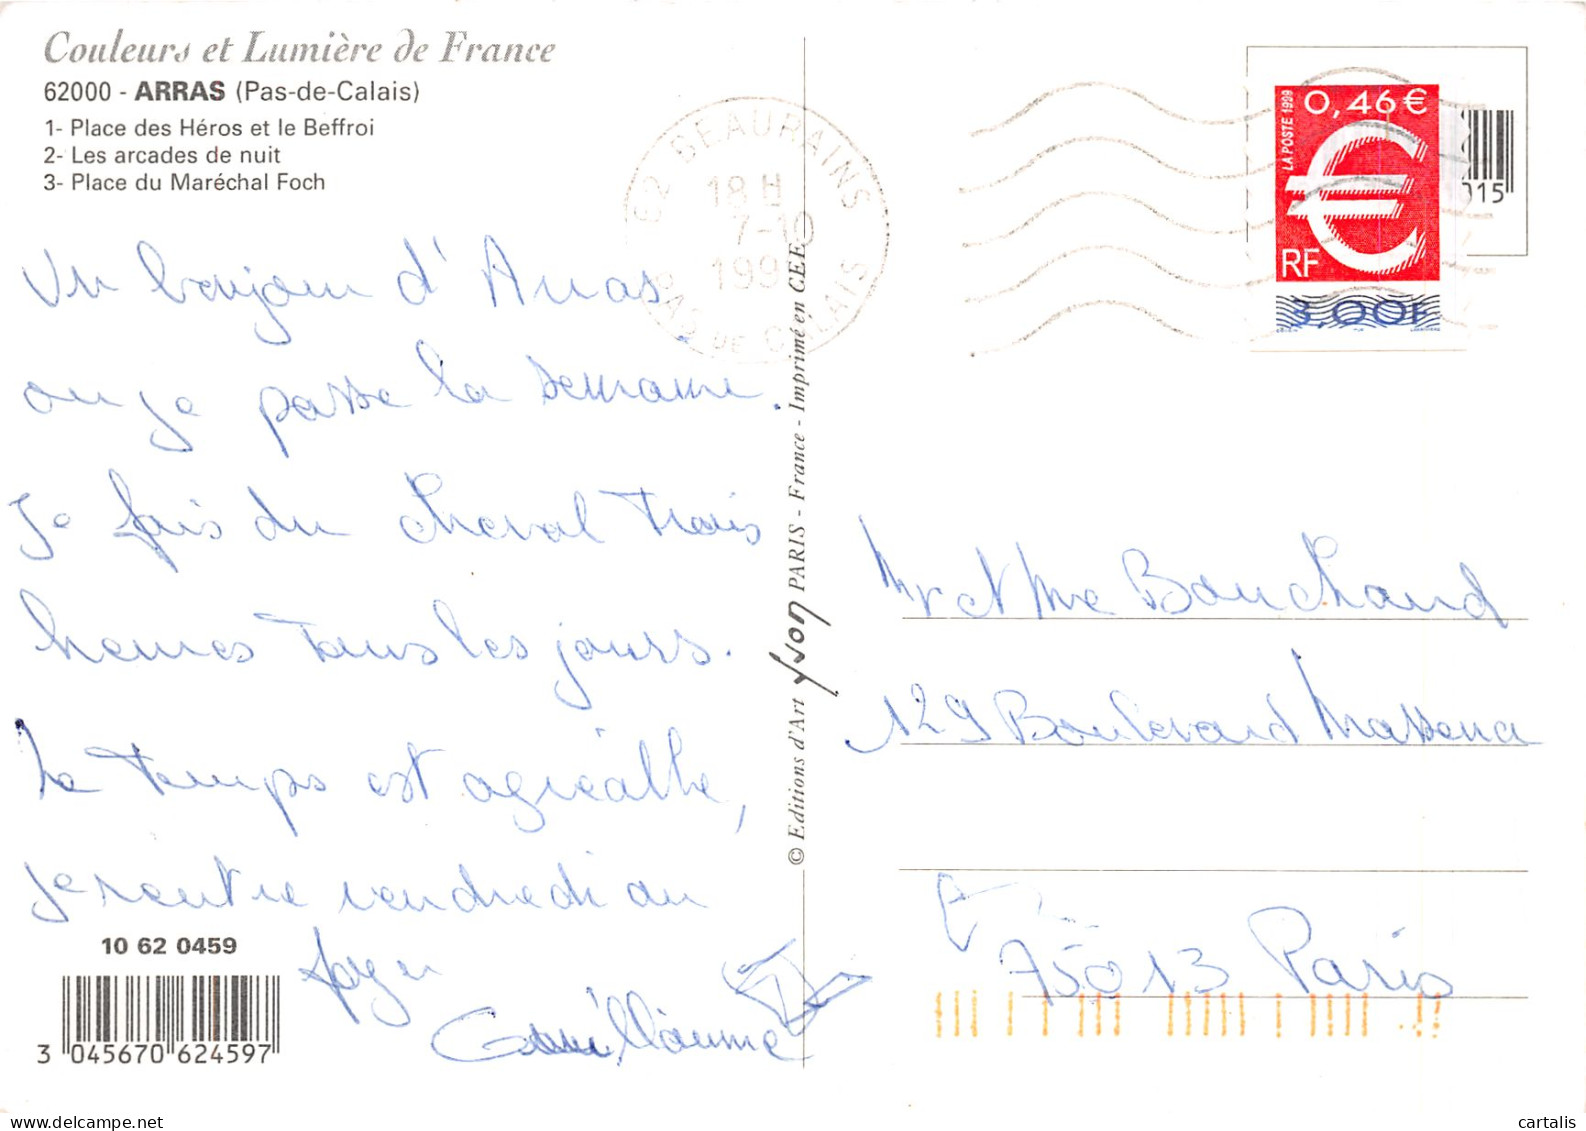 Couleurs et Lumière de France
62000 - ARRAS (Pas-de-Calais)
1- Place des Héros et le Beffroi
2- Les arcades de nuit
3- Place du Maréchal Foch
Un bonjour d'Arras
ou je passe la semaine.
Je fais du cheval trois
heures tous les jours.
Le temps est agréable,
je rentre vendredi au
foyer
Guillaume
10 62 0459
3 045670 624597
© Editions d'Art yvon PARIS - France - Imprimé en CEE
62 BEAURAINS
18 H
7-10
199
PAS DE CALAIS
LA POSTE 1999
0,46 €
€
RF
3,00F
015
Mr et Mme Bouchaud
129 Boulevard Massena
75013 Paris
delcampe.net
cartalis